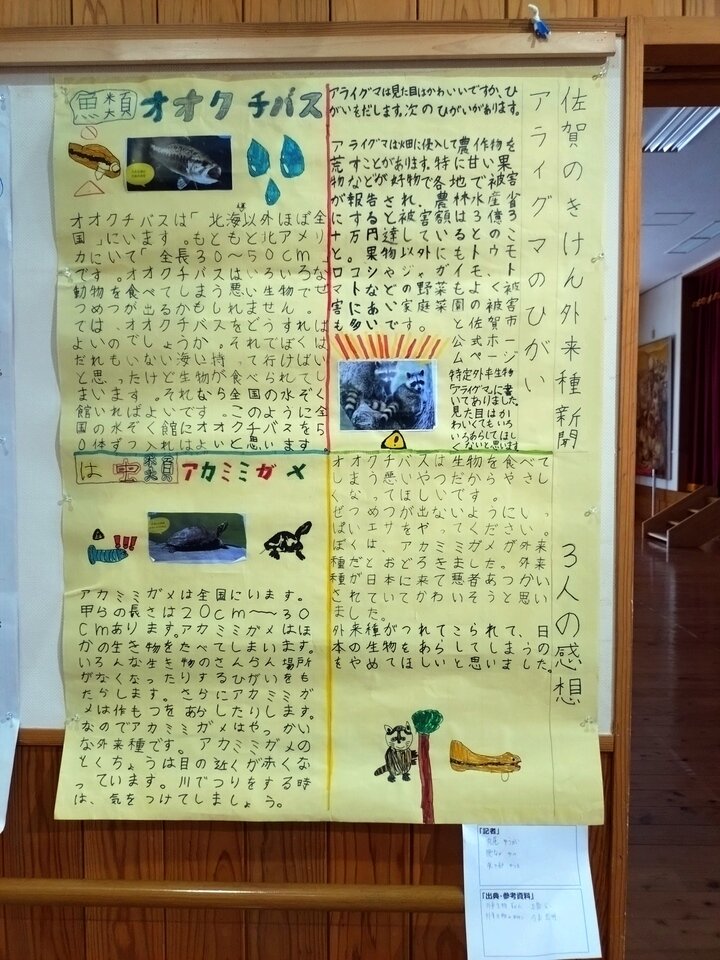 佐賀のきけん外来種新聞
アライグマのひがい
アライグマは見た目はかわいいですが、ひ
がいをだします。次のひがいがあります。
アライグマは畑に侵入して農作物を
荒すことがあります。特に甘い果
物などが好物で各地で被害
が報告され、農林水産省
にすると被害額は3億3
十万円達しているとのこ
と。果物以外にもトウモ
ロコシやジャガイモ、ト
マトなどの野菜もよく被
害にあい家庭菜園の被害
も多いです。
と佐賀市
公式ホー
ムページ
特定外来生物
アライグマに書
いてありました。
見た目はか
わいくてもいろ
いろあらしてほし
くないと思います
魚類 オオクチバス
オオクチバスは「北海以外ほぼ全
国」にいます。もともと北アメリ
カにいて「全長30～50cm」
です。オオクチバスはいろいろな
動物を食べてしまう悪い生物でぜ
つめつが出るかもしれません。
では、オオクチバスをどうすれば
よいのでしょうか。それでぼくは
だれもいない海い持って行けばい
と思ったけど生物が食べられてし
まいます。それなら全国の水ぞく
館いればよいです。このように全
国の水ぞく館にオオクチバスを5
0体ずつ入れはよいと思います。
は虫類 アカミミガメ
アカミミガメは全国にいます。
甲らの長さは20cm～30
cmあります。アカミミガメはほ
かの生き物をたべてしまいます。
いろんな生き物のさんらん場所
がなくなったりするひがいをも
たらします。さらにアカミミガ
メは作もつをあらしたりします。
なのでアカミミガメはやっかい
な外来種です。アカミミガメの
とくちょうは目の近くが赤くな
っています。川でつりをする時
は、気をつけてしましょう。
3人の感想
オオクチバスは生物を食べて
しまう悪いやつだからやさし
くなってほしいです。
ぜつめつが出ないようにいっ
ぱいエサをやってください。
ぼくは、アカミミガメが外来
種だとおどろきました。外来
種が日本に来て悪者あつかい
されていてかわいそうと思い
ました。
外来種がつれてこられて、日
本の生物をあらしてしまうの
をやめてほしいと思いました。
「記者」
「出典・参考資料」